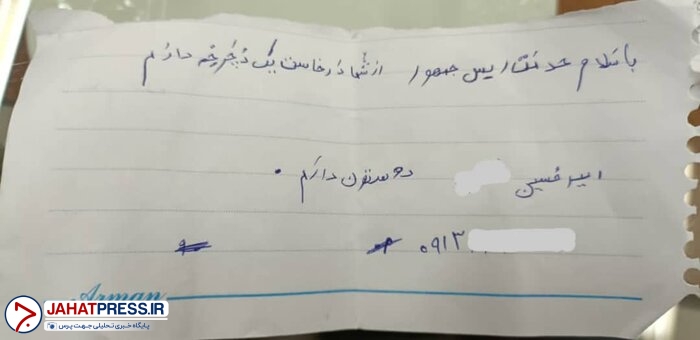 با سلام خدمت رییس جمهور از شما درخاست یک دوچرخه دارم
امیر حسین دوستون دارم.
۰۹۱۳
Arman
JAHATPRESS.IR
پایگاه خبری تحلیلی جهت پرس